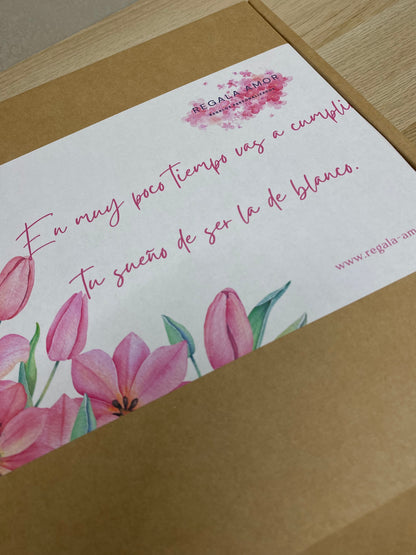 REGALA AMOR
En muy poco tiempo vas a cumpli
tu sueño de ser la de blanco.
www.regala-am